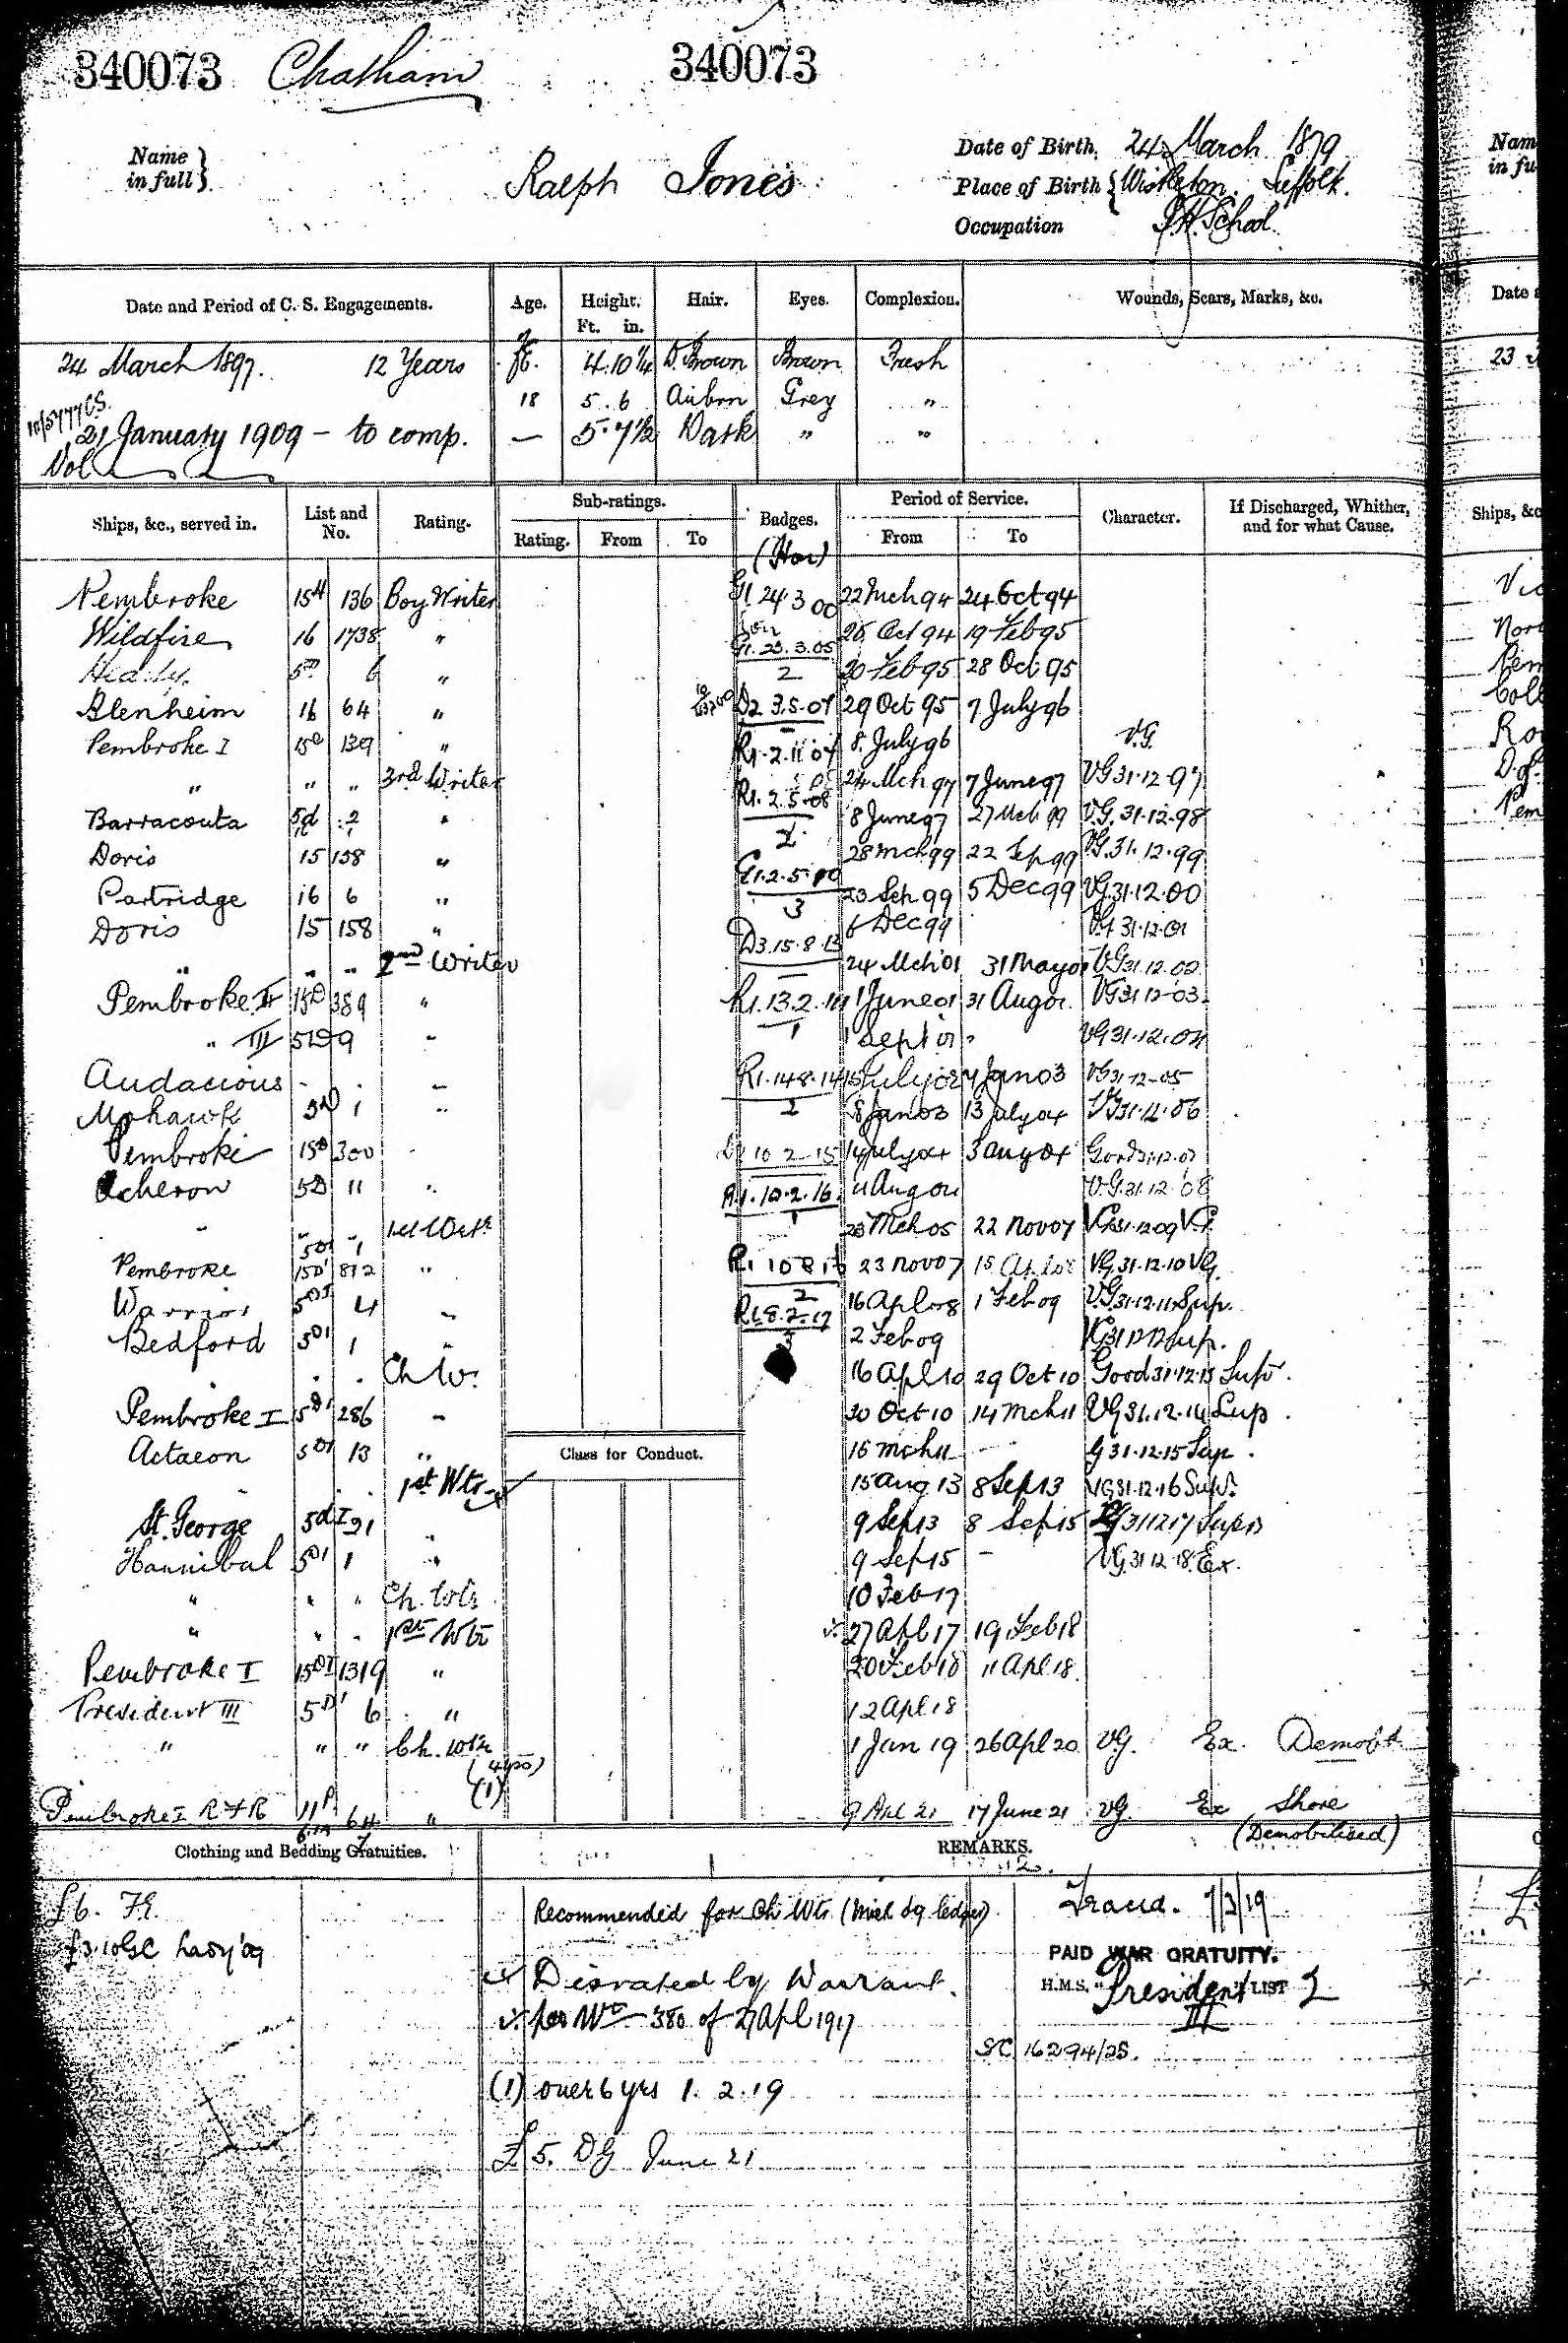 340073 Chatham 340073
Name in full } Ralph Jones
Date of Birth. 24 March 1879
Place of Birth { Suffolk.
Occupation School.
Date and Period of C. S. Engagements. Age. Height. Ft. in. Hair. Eyes. Complexion. Wounds, Scars, Marks, &c.
24 March 1897. 12 Years 4.10¼ D. Brown Brown Fresh
18 5.6 Auburn Grey "
21 January 1909 - to comp. — 5.7½ Dark " "
Vol
Ships, &c., served in. List and No. Rating. Sub-ratings. Rating. From To Badges. Period of Service. From To Character. If Discharged, Whither, and for what Cause.
Pembroke 15A 136 Boy Writer G1 24 3 00 22 Mch 94 24 Oct 94
Wildfire 16 1738 " G1. 23.3.05 25 Oct 94 19 Feb 95
5D 6 " 2 20 Feb 95 28 Oct 95
Blenheim 16 64 " D2 3.5.07 29 Oct 95 7 July 96
Pembroke I 15D 139 " R1.2.11.07 8 July 96 V.G.
" " " 3rd Writer R1.2.5.08 24 Mch 97 7 June 97 VG 31.12.97
Barracouta 5d 2 " 2 8 June 97 27 Mch 99 V.G. 31.12.98
Doris 15 158 " 28 Mch 99 22 Sep 99 VG. 31.12.99
Partridge 16 6 " 3 23 Sep 99 5 Dec 99 VG. 31.12.00
Doris 15 158 " D3.15.8.13 6 Dec 99 VG 31.12.01
" " " 2nd Writer 24 Mch 01 31 May 01 VG 31.12.02
Pembroke II 15D 389 " R1.13.2.14 1 June 01 31 Aug 01 VG 31.12.03
" III 5D 9 " 1 1 Sept 01 VG 31.12.04
Audacious - - " R1.14.8.14 15 July 02 7 Jan 03 VG 31.12.05
Mohawk 5D 1 " 2 8 Jan 03 13 July 04 VG 31.12.06
Pembroke 15D 300 " 10.2.15 14 July 04 3 Aug 04 Good 31.12.07
Acheron 5D 11 " R1.10.2.16 4 Aug 04 V.G. 31.12.08
" " " 1st Wrtr 1 23 Mch 05 22 Nov 07 VG 31.12.09 VG
5D1 1
Pembroke 15D1 812 " R1 10 8 16 23 Nov 07 15 Apl 08 VG 31.12.10 VG.
Warrior 5D1 4 " 2 16 Apl 08 1 Feb 09 V.G. 31.12.11 Sup.
Bedford 5D1 1 " R1.8.2.17 3 2 Feb 09 VG 31 12 12 Sup.
" . . Ch Wr. 16 Apl 10 29 Oct 10 Good 31.12.13 Supr.
Pembroke I 5D1 286 " 30 Oct 10 14 Mch 11 VG 31.12.14 Sup.
Class for Conduct.
Actaeon 5D1 13 " 15 Mch 11 — G 31.12.15 Sup.
" . . 1st Wtr 15 Aug 13 8 Sep 13 VG 31.12.16 Supr.
St. George 5d I 21 " 9 Sep 13 8 Sep 15 VG 31 12 17 Supr
Hannibal 5D1 1 " 9 Sep 15 - VG. 31.12.18. Ex.
" " " Ch. Wtr 10 Feb 17
" " " 1st Wtr 27 Apl 17 19 Feb 18
Pembroke I 15D I 1319 " 20 Feb 18 11 Apl 18.
President III 5D1 6 " 12 Apl 18
" " " Ch. Wtr 1 Jan 19 26 Apl 20 VG. Ex. Demobd
(1)
Pembroke I 11P 64 " 9 Apl 21 17 June 21 VG. Ex Shore
(Demobilised)
Clothing and Bedding Gratuities. REMARKS.
£6. Recommended for Ch Wtr. Fraud. 1/3/19
£3.10 PAID WAR GRATUITY.
Disrated by Warrant. H.M.S. "President III" LIST 2
per Wt 380 of 27 Apl 1917
SC 16294/25.
(1) over 6 yrs 1.2.19
£5. DG June 21
Name in full
Date
23
Ships, &c